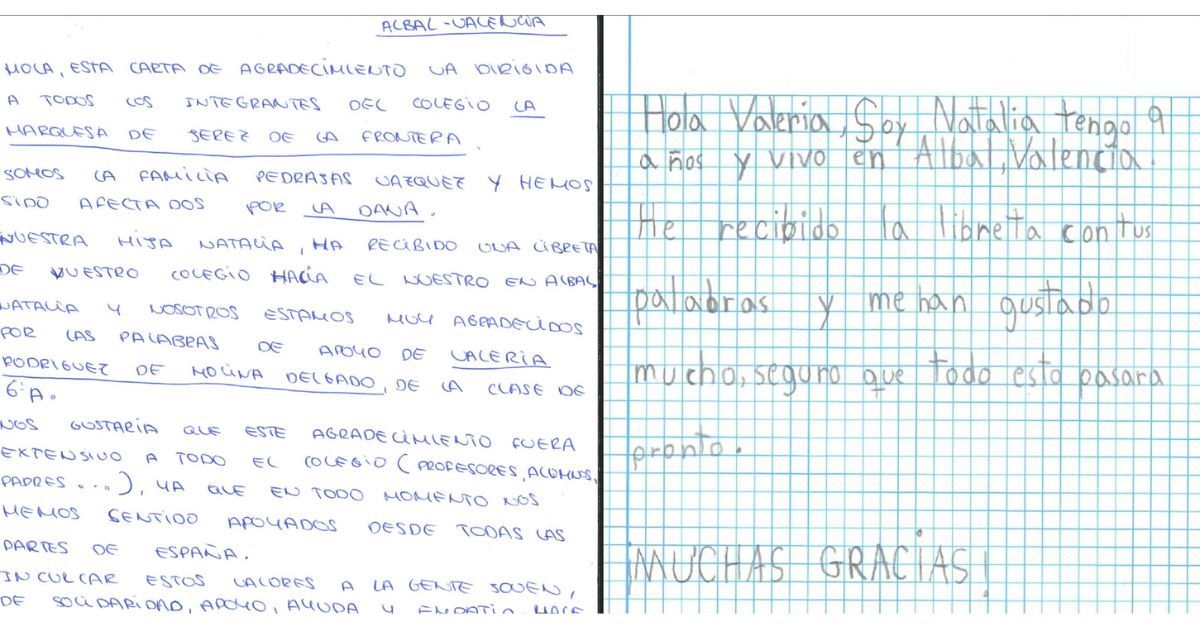 ALBAL-VALENCIA
HOLA, ESTA CARTA DE AGRADECIMIENTO VA DIRIGIDA
A TODOS LOS INTEGRANTES DEL COLEGIO LA
MARQUESA DE JEREZ DE LA FRONTERA.
SOMOS LA FAMILIA PEDRAJAS VAZQUEZ Y HEMOS
SIDO AFECTADOS POR LA DANA.
NUESTRA HIJA NATALIA, HA RECIBIDO UNA LIBRETA
DE VUESTRO COLEGIO HACIA EL NUESTRO EN ALBAL
NATALIA Y NOSOTROS ESTAMOS MUY AGRADECIDOS
POR LAS PALABRAS DE APOYO DE VALERIA
RODRIGUEZ DE MOLINA DELGADO, DE LA CLASE DE
6ºA.
NOS GUSTARÍA QUE ESTE AGRADECIMIENTO FUERA
EXTENSIVO A TODO EL COLEGIO (PROFESORES, ALUMNOS,
PADRES...), YA QUE EN TODO MOMENTO NOS
HEMOS SENTIDO APOYADOS DESDE TODAS LAS
PARTES DE ESPAÑA.
INCULCAR ESTOS VALORES A LA GENTE JOVEN,
DE SOLIDARIDAD, APOYO, AYUDA Y EMPATIA HACE
Hola Valeria, Soy Natalia tengo 9
años y vivo en Albal, Valencia.
He recibido la libreta con tus
palabras y me han gustado
mucho, seguro que todo esto pasara
pronto.
¡MUCHAS GRACIAS!